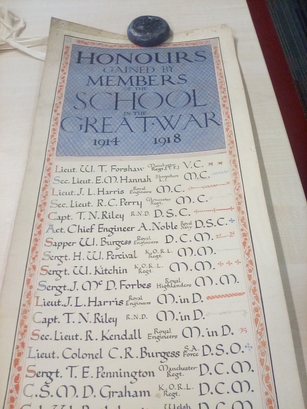 HONOURS
GAINED BY
MEMBERS
OF THE
SCHOOL
IN THE
GREAT·WAR
1914 1918
Lieut. W. T. Forshaw Manchester Regt. (T.F.) V.C.
Sec. Lieut. E. M. Hannah M.C.
Lieut. J. L. Harris Royal Engineers M.C.
Sec. Lieut. R. C. Perry Regt. M.C.
Capt. T. N. Riley R.N.D. D.S.C.
Act. Chief Engineer A. Noble Royal Navy D.S.C.
Sapper W. Burgess Royal Engineers D.C.M.
Sergt. H. W. Percival K.O.R.L. Regt. M.M.
Sergt. W. Kitchin K.O.R.L. Regt. M.M.
Sergt. J. Mc D. Forbes Royal Highlanders M.M.
Lieut. J. L. Harris Royal Engineers M. in D.
Capt. T. N. Riley R.N.D. M. in D.
Sec. Lieut. R. Kendall Royal Engineers M. in D.
Lieut. Colonel C. R. Burgess S.A. Force D.S.O.
Sergt. T. E. Pennington Manchester Regt. D.C.M.
C.S.M. D. Graham K.O.R.L. Regt. D.C.M.
Welsh D.C.M.